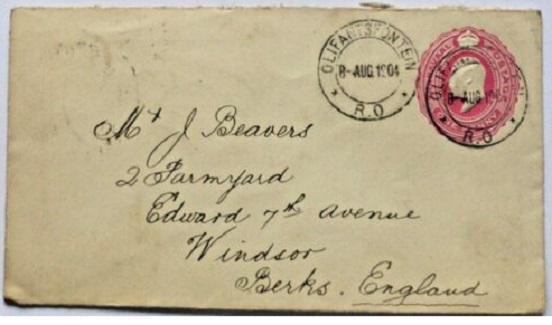 OLIFANTSFONTEIN
8-AUG.1904
R.O
8-AUG 190
R.O
Mr J Beavers
2 Farmyard
Edward 7th avenue
Windsor
Berks. England